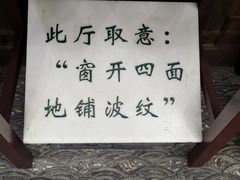 此厅取意：
“窗开四面
地铺波纹”